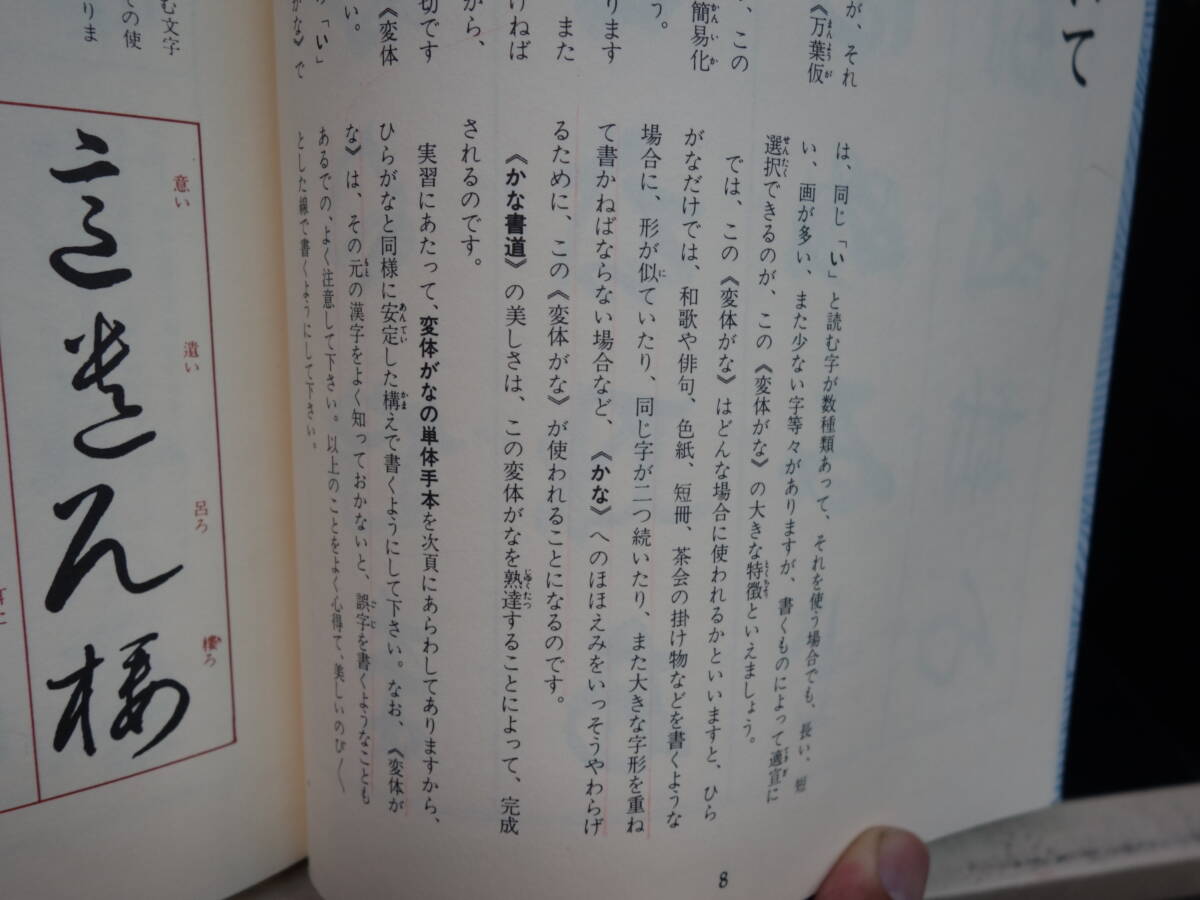 いて
が、それ
《万葉仮
、この
簡易化
う。
ります
また
けねば
から、
切です
《変体
い。
の「い」
がな》で
は、同じ「い」と読む字が数種類あって、それを使う場合でも、長い、短
い、画が多い、また少ない字等々がありますが、書くものによって適宜に
選択できるのが、この《変体がな》の大きな特徴といえましょう。
では、この《変体がな》はどんな場合に使われるかといいますと、ひら
がなだけでは、和歌や俳句、色紙、短冊、茶会の掛け物などを書くような
場合に、形が似ていたり、同じ字が二つ続いたり、また大きな字形を重ね
て書かねばならない場合など、《かな》へのほほえみをいっそうやわらげ
るために、この《変体がな》が使われることになるのです。
《かな書道》の美しさは、この変体がなを熟達することによって、完成
されるのです。
実習にあたって、変体がなの単体手本を次頁にあらわしてありますから、
ひらがなと同様に安定した構えで書くようにして下さい。なお、《変体が
な》は、その元の漢字をよく知っておかないと、誤字を書くようなことも
あるでの、よく注意して下さい。以上のことをよく心得て、美しいのび〱
とした線で書くようにして下さい。
8
む文字
ての使
りま
意い
遣い
呂ろ
樓ろ
意
遣
呂
樓